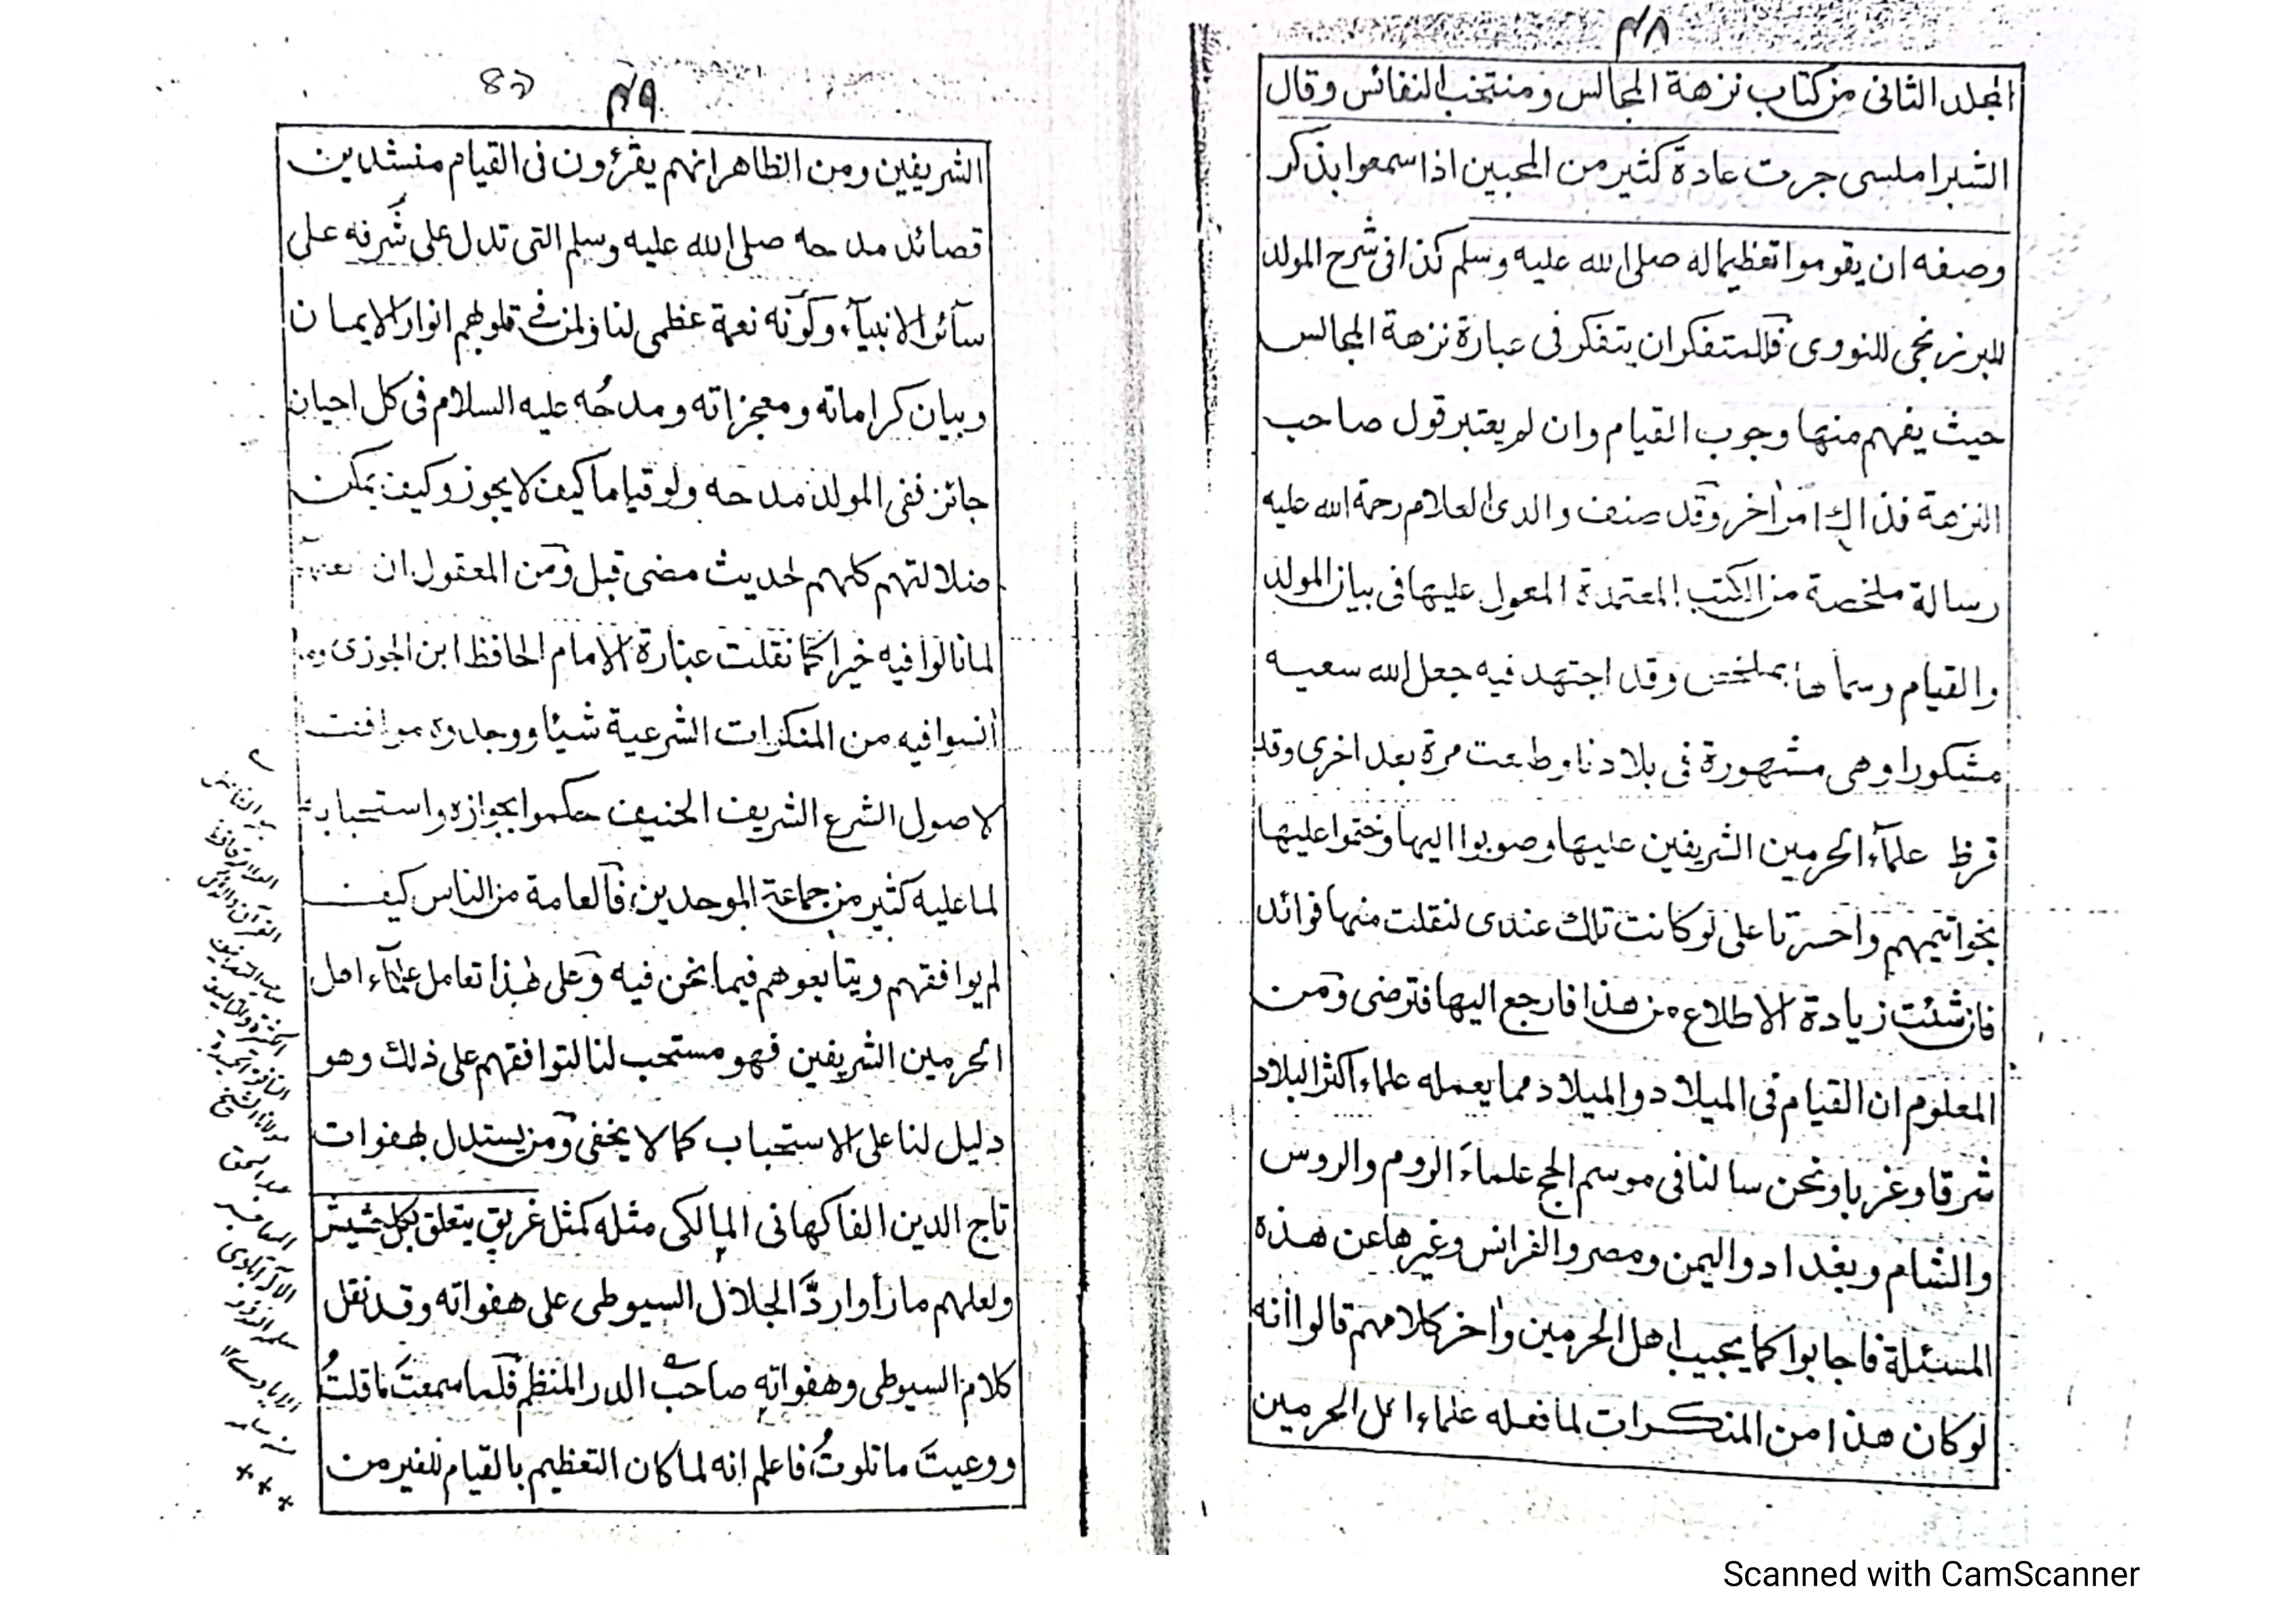 ٤٨
المجلد الثانى من كتاب نزهة المجالس ومنتخب النفائس وقال
الشبراملسى جرت عادة كثير من المحبين اذا سمعوا بذكر
وصفه ان يقوموا تعظيما له صلى الله عليه وسلم كذا فى شرح المولد
للبرزنجى للنووى فللمتفكر ان يتفكر فى عبارة نزهة المجالس
حيث يفهم منها وجوب القيام وان لم يعتبر قول صاحب
النزهة فذاك امر اخر وقد صنف والدى العلام رحمة الله عليه
رسالة ملخصة من الكتب المعتمدة المعول عليها فى بيان المولد
والقيام وسماها بملخص وقد اجتهد فيه جعل الله سعيه
مشكورا وهى مشهورة فى بلادنا وطبعت مرة بعد اخرى وقد
قرظ علمآء الحرمين الشريفين عليها وصوبوا اليها وختموا عليها
بخواتيمهم واحسرتا على لو كانت تلك عندى لنقلت منها فوائد
فان شئت زيادة الاطلاع من هذا فارجع اليها فترضى ومن
المعلوم ان القيام فى الميلاد والميلاد مما يعمله علماء اكثر البلاد
شرقا وغربا ونحن سالنا فى موسم الحج علماءَ الروم والروس
والشام وبغداد واليمن ومصر والفرانس وغيرها عن هذه
المسئلة فاجابوا كما يجيب اهل الحرمين واٰخر كلامهم قالوا انه
لو كان هذا من المنكرات لما فعله علماء اهل الحرمين
٤٩
الشريفين ومن الظاهر انهم يقرؤون فى القيام منشدين
قصائد مدحه صلى الله عليه وسلم التى تدل على شَرفه على
سآئر الانبيآء وكونه نعمة عظمى لنا ولمن فے قلوبهم انوار الايمان
وبيان كراماته ومعجزاته ومدحُه عليه السلام فى كل احيان
جائز ففى المولد مدحه ولو قياما كيف لا يجوز وكيف يمكن
ضلالتهم كلهم لحديث مضى قبل ومن المعقول ان
لما نالوا فيه خيرا كما نقلت عبارة الامام الحافظ ابن الجوزى وما
اٰنسوا فيه من المنكرات الشرعية شيئا ووجدوه موافقت
لاصول الشرع الشريف الحنيف حكموا بجوازه واستحبابه
لما عليه كثير من جماعة الموحدين فالعامة من الناس كيف
لم يوافقهم ويتابعوهم فيما نحن فيه وعلى هٰذا تعامل علمآء اهل
الحرمين الشريفين فهو مستحب لنا لتوافقهم على ذلك وهو
دليل لنا على الاستحباب كما لا يخفى ومن يستدل بهفوات
تاج الدين الفاكهانى المالكى مثله كمثل غريق يتعلق بكل حشيش
ولعلهم ما رأوا ردَّ الجلال السيوطى على هفواته وقد نقل
كلام السيوطى وهفواتهٖ صاحب الدر المنظم فلما سمعتَ ما قلتُ
ووعيتَ ما تلوتُ فاعلم انه لما كان التعظيم بالقيام للغير من
مولانا الشيخ
عبد الحق
Scanned with CamScanner